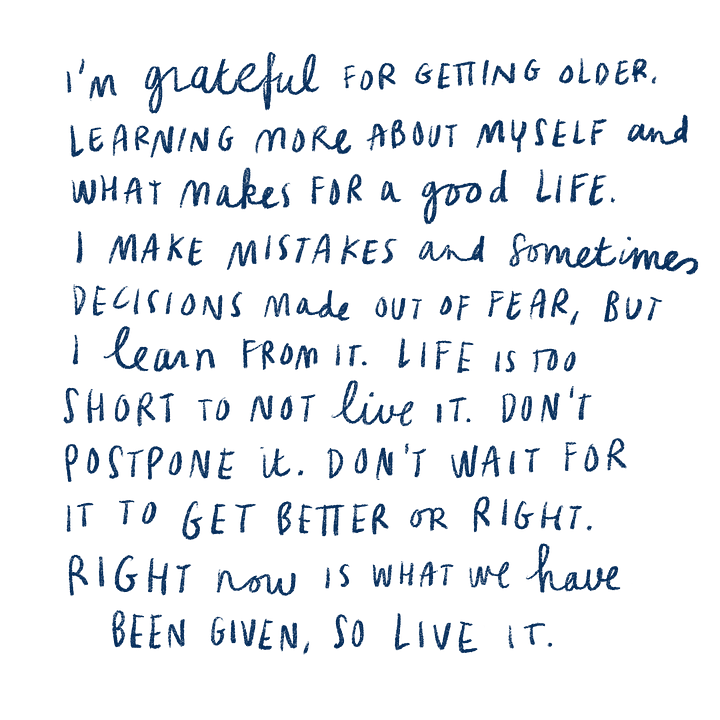 I'm grateful FOR GETTING OLDER.
LEARNING MORe ABOUT MYSELF and
WHAT makes FOR a good LIFE.
I MAKE MISTAKES and sometimes
DECISIONS made OUT OF FEAR, BUT
I learn FROM IT. LIFE IS TOO
SHORT TO NOT live IT. DON'T
POSTPONE it. DON'T WAIT FOR
IT TO GET BETTER OR RIGHT.
RIGHT now IS WHAT we have
BEEN GIVEN, SO LIVE IT.